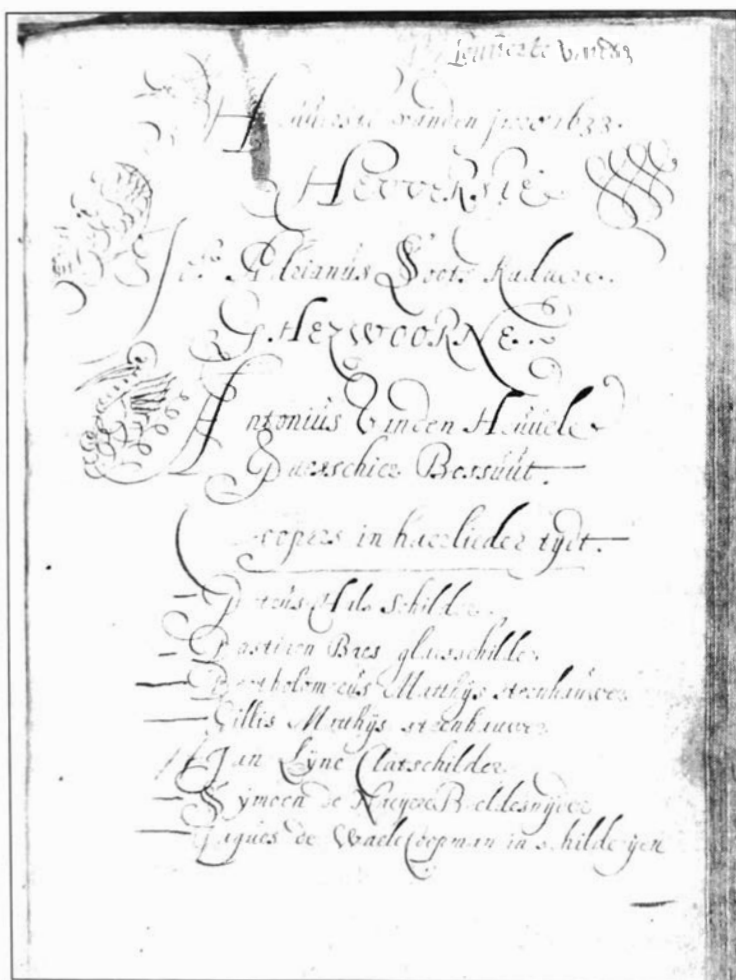 Heuverste vanden jaere 1633.
HEVVERSTE
Adrianus Soots Raduere
GHEZWOORNE.
Antonius Vanden Heuvele
Paesschier Bossuut.
Coopers in haerlieder tydt.
Petrus Hals Schilder.
Bastiaen Baes glaesschilder
Bartholomeus Matthys steenhauwer
Gillis Matthys steenhauwer
Jan Lyne Claerschilder
Symoen de Beeldesnyder
Jaques de Waele Coopman in schilderyen